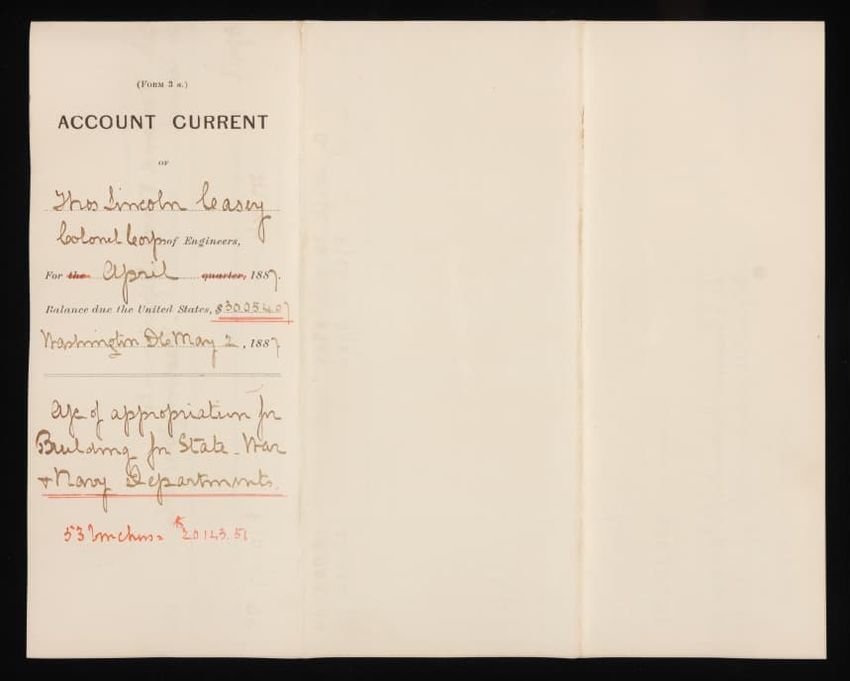 (Form 3 a.)
ACCOUNT CURRENT
OF
Thos Lincoln Casey
Colonel Corps of Engineers,
For the April quarter, 1887.
Balance due the United States, $30054.07
Washington DC May 2, 1887
a/c of appropriation for
Building for State War
& Navy Departments.
53 Vouchers = $20143.51